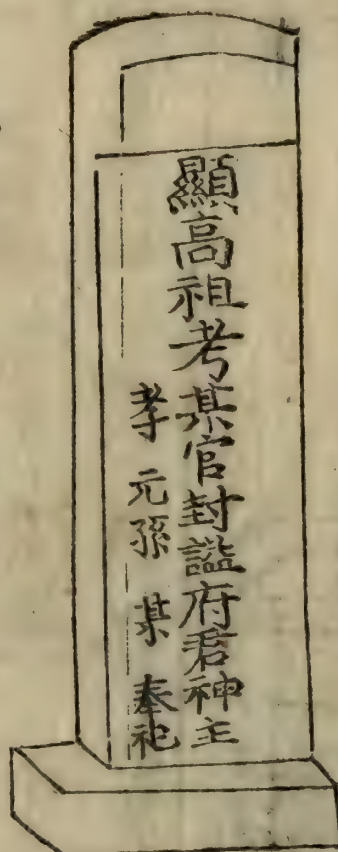 顯高祖考某官封諡府君神主
孝元孫某奉祀